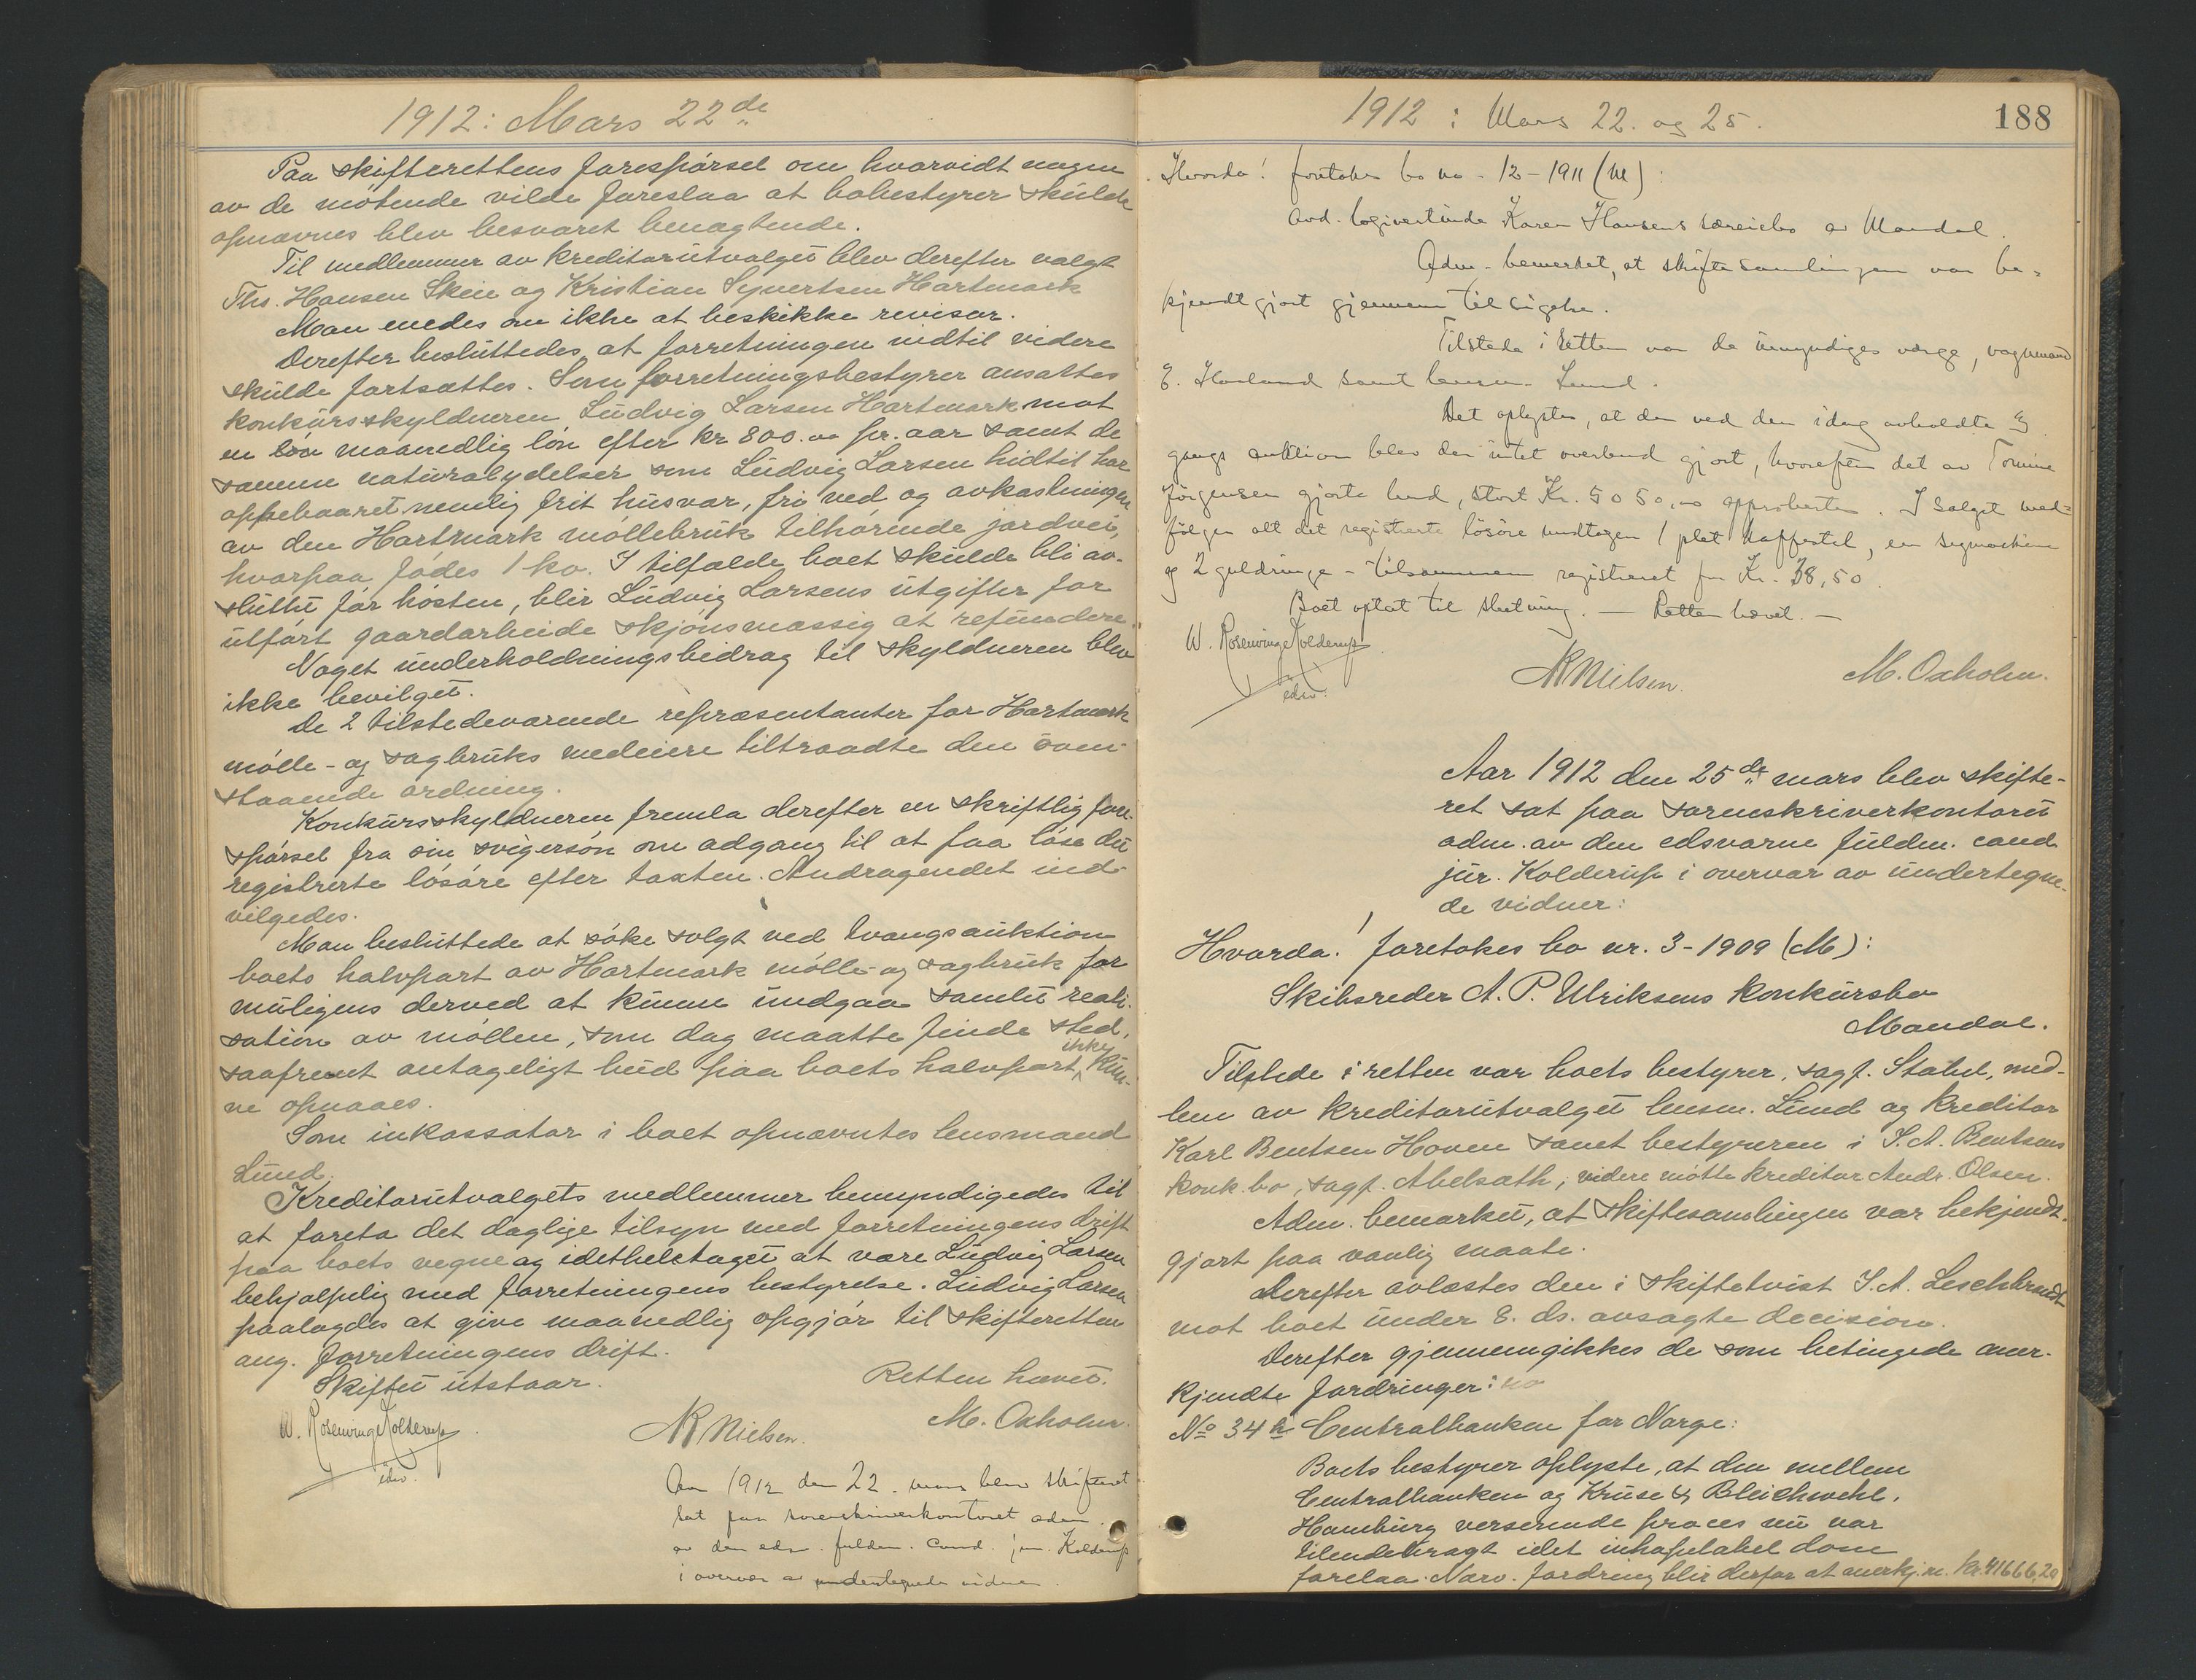 1912: Mars 22de
Paa skifterettens forespørsel om hvorvidt nogen
av de møtende vilde foreslaa at bobestyrer skulde
opnævnes blev besvaret benægtende.
Til medlemmer av kreditorutvalget blev derefter valgt
Ths. Hansen Skeie og Kristian Syvertsen Hartmark
Man enedes om ikke at beskikke revisor.
Derefter besluttedes, at forretningen indtil videre
skulde fortsættes. Som forretningsbestyrer ansattes
konkursskyldneren Ludvig Larsen Hartmark mot
en løn maanedlig løn efter kr 800.00 pr. aar samt de
samme naturalydelser som Ludvig Larsen hidtil har
oppebaaret nemlig frit husvær, fri ved og avkastningen
av den Hartmark møllebruk tilhørende jordvei,
hvorpaa fødes 1 ko. I tilfælde boet skulde bli av-
sluttet før høsten, blir Ludvig Larsens utgifter for
utført gaardarbeide skjønsmæssig at refundere.
Noget underholdningsbidrag til skyldneren blev
ikke bevilget.
De 2 tilstedeværende repræsentanter for Hartmark
mølle- og sagbruks medeiere tiltraadte den oven-
staaende ordning.
Konkursskyldneren fremla derefter en skriftlig fore-
spørsel fra sin svigersøn om adgang til at faa løse det
registrerte løsøre efter taxten. Andragendet ind-
vilgedes.
Man besluttede at søke solgt ved tvangsauktion
boets halvpart av Hartmark mølle- og sagbruk for
muligens derved at kunne undgaa samlet reali-
sation av møllen, som dog maatte finde sted,
saafremt antageligt bud paa boets halvpart ikke kun-
ne opnaaes.
Som inkassator i boet opnævntes lensmand
Lund.
Kreditorutvalgets medlemmer bemyndigedes til
at foreta det daglige tilsyn med forretningens drift
paa boets vegne og idethele tat at være Ludvig Larsen
behjælpelig med forretningens bestyrelse. Ludvig Larsen
paalagdes at give maanedlig opgjør til skifteretten
ang. forretningens drift.
Skiftet utstaar. Retten hævet.
W. Rosenvinge Kolderup NR Nielsen. M. Oxholm.
edsv.
Aar 1912 den 22. mars blev skifteret
sat paa sorenskriverkontoret adm.
av den edsv. fuldm. cand. jur. Kolderup
i overvær av undertegnede vidner.
1912: Mars 22. og 25. 188
Hvorda! foretokes bo no. 12-1911 (M):
avd. logivertinde Karen Hansens særeiebo av Mandal.
Adm. bemerket, at skiftesamlingen var be-
kjendtgjort gjennem tilsigelse.
Tilstede i retten var de umyndiges værge, vognmand
E. Haaland samt lensm. Lund.
Det oplystes, at der ved den idag avholdte 2.
gangs auktion blev der intet overbud gjort, hvorefter det av Tomine
Jørgensen gjorte bud, stort Kr. 5050,00 approbertes. I salget med-
følger alt det registrerte løsøre undtagen 1 plet kaffestel, en symaskine
og 2 guldringe - tilsammen registreret for Kr. 38,50.
Boet optat til slutning. — Retten hævet. —
W. Rosenvinge Kolderup NR Nielsen. M. Oxholm.
edsv.
Aar 1912 den 25de mars blev skifte-
ret sat paa sorenskriverkontoret
adm. av den edsvorne fuldm. cand.
jur. Kolderup i overvær av undertegne-
de vidner:
Hvorda! foretokes bo nr. 3-1909 (M):
Skibsreder A. P. Ulriksens konkursbo
Mandal.
Tilstede i retten var boets bestyrer, sagf. Stabel, med-
lem av kreditorutvalget lensm. Lund og kreditor
Karl Bentsen Hoven samt bestyreren i S. A. Bentsens
konk. bo, sagf. Abelsæth; videre møtte kreditor Andr. Olsen.
Adm. bemærket, at skiftesamlingen var bekjendt-
gjort paa vanlig maate.
Derefter avlæstes den i skiftetvist S. A. Leschbrandt
mot boet under 8. ds. avsagte decision.
Derefter gjennemgikkes de som betingede aner-
kjendte fordringer: no
No 34 h Centralbanken for Norge:
Boets bestyrer oplyste, at den mellem
Centralbanken og Kruse & Bleichwehl,
Hamburg verserende proces nu var
tilendebragt idet inhapelabel dom
forelaa. Nærv. fordring blir derfor at anerkj. m. kr. 41666,20